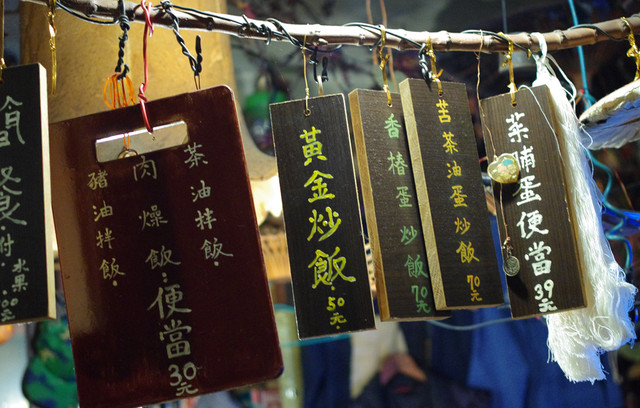 簡
附水果
茶油拌飯.
肉燥飯:便當30元
豬油拌飯.
黃金炒飯.50元
香椿蛋炒飯70元
苦茶油蛋炒飯70元
菜脯蛋便當39元